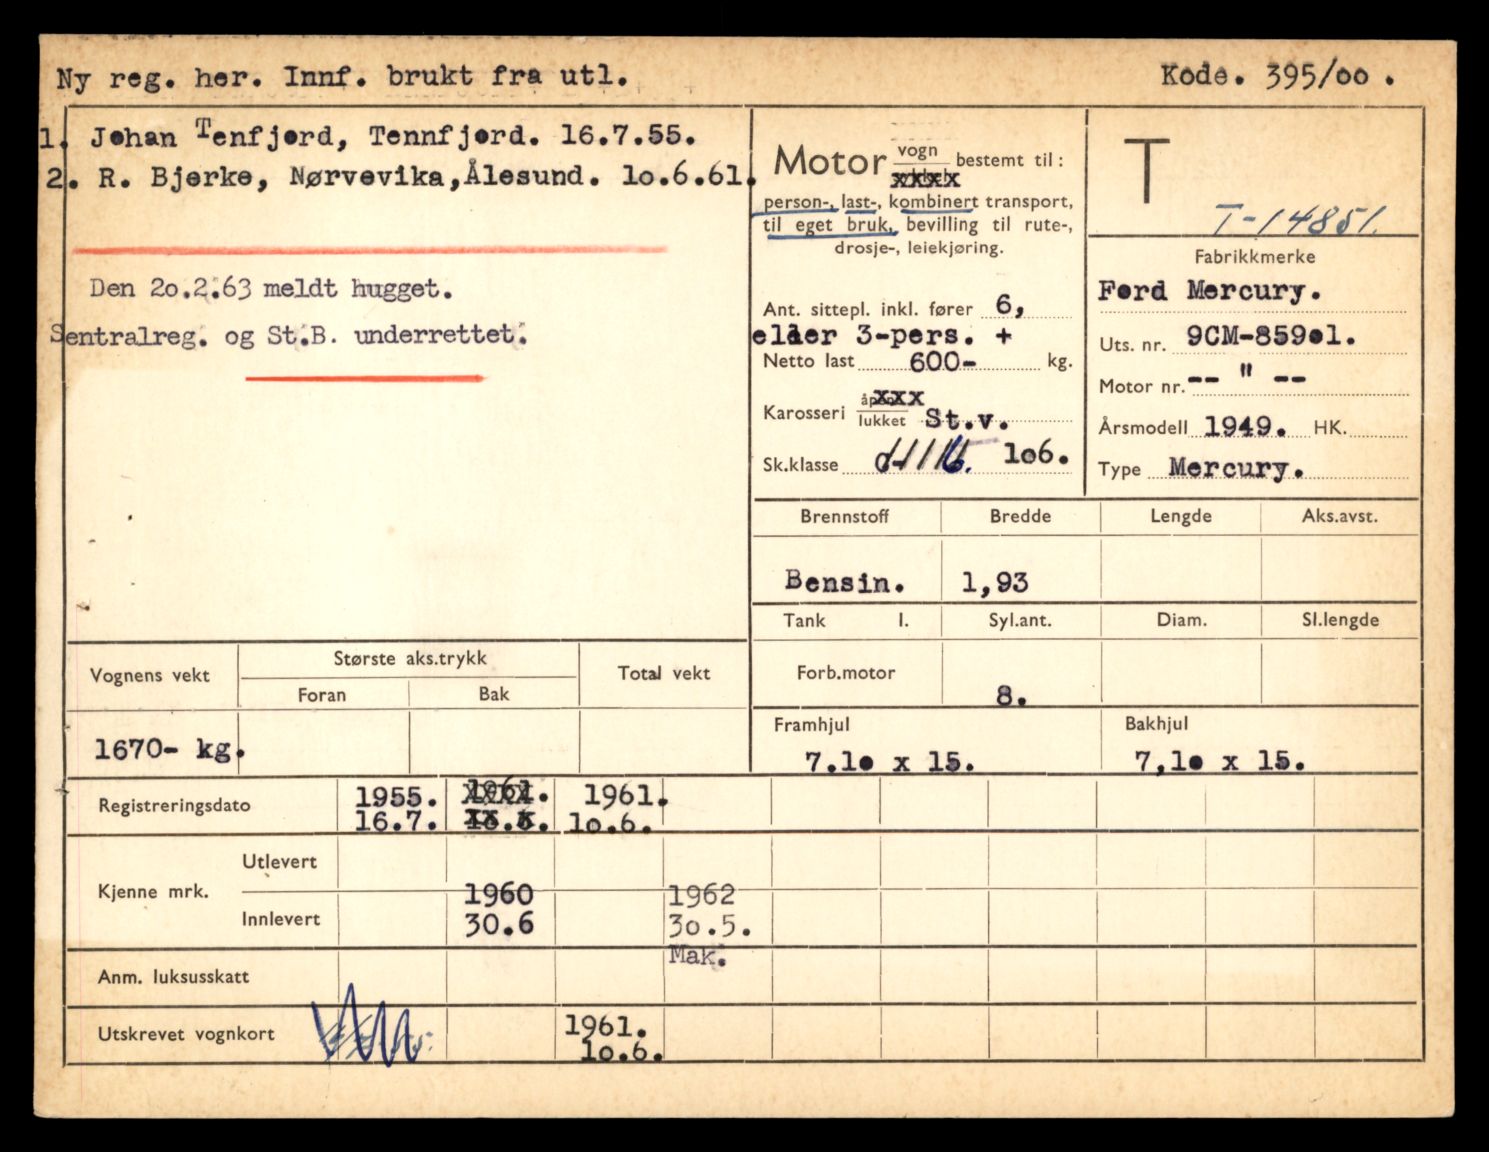 Ny reg. her. Innf. brukt fra utl.
Kode. 395/oo .
1. Johan Tenfjord, Tennfjord. 16.7.55.
2. R. Bjerke, Nørvevika,Ålesund. 1o.6.61.
Den 2o.2.63 meldt hugget.
Sentralreg. og St.B. underrettet.
Motor vogn bestemt til:
xxxx
person-, last-, kombinert transport,
til eget bruk, bevilling til rute-,
drosje-, leiekjøring.
Ant. sittepl. inkl. fører 6,
eller 3-pers. +
Netto last 600- kg.
Karosseri åpen xxx
lukket St.v.
Sk.klasse 1o6.
T
T-14851.
Fabrikkmerke
Ford Mercury.
Uts. nr. 9CM-859o1.
Motor nr. -- " --
Årsmodell 1949. HK.
Type Mercury.
Brennstoff Bredde Lengde Aks.avst.
Bensin. 1,93
Tank l. Syl.ant. Diam. Sl.lengde
Forb.motor 8.
Framhjul Bakhjul
7.1o x 15. 7,1o x 15.
Vognens vekt Største aks.trykk Total vekt
Foran Bak
1670- kg.
Registreringsdato 1955. 1961. 1961.
16.7. 1o.6.
Kjenne mrk. Utlevert
Innlevert
1960 1962
30.6 3o.5.
Mak.
Anm. luksusskatt
Utskrevet vognkort 1961.
1o.6.